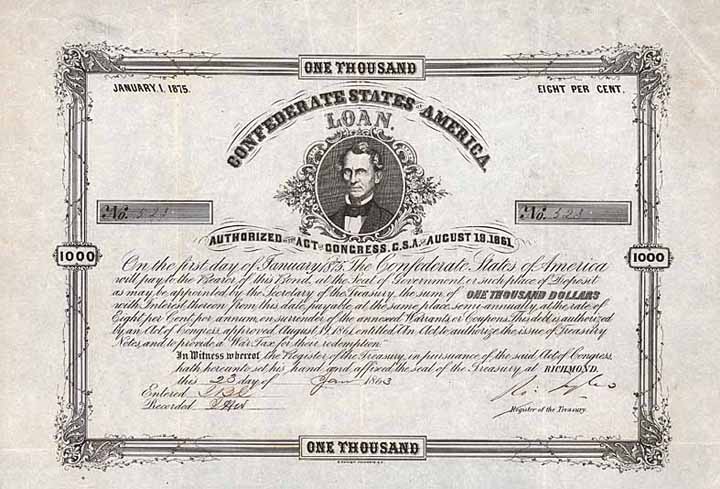 ONE THOUSAND
JANUARY, 1, 1875.
EIGHT PER CENT.
CONFEDERATE STATES OF AMERICA.
LOAN.
No. 523
No. 523
AUTHORIZED BY ACT OF CONGRESS. C.S.A. OF AUGUST 19. 1861.
1000
1000
On the first day of January, 1875, The Confederate States of America
will pay to the Bearer of this Bond, at the Seat of Government, or such place of Deposit
as may be appointed by the Secretary of the Treasury, the sum of ONE THOUSAND DOLLARS
with Interest thereon from this date, payable at the same place semi-annually, at the rate of
Eight per Cent. per annum, on surrender of the annexed Warrants or Coupons. This debt is authorized
by an Act of Congress approved August 19, 1861, entitled An Act to authorize the issue of Treasury
Notes, and to provide a War Tax for their redemption.
In Witness whereof the Register of the Treasury, in pursuance of the said Act of Congress,
hath hereunto set his hand and affixed the seal of the Treasury at RICHMOND.
this 23 day of Jan 1863
Entered
Recorded
Register of the Treasury.
ONE THOUSAND